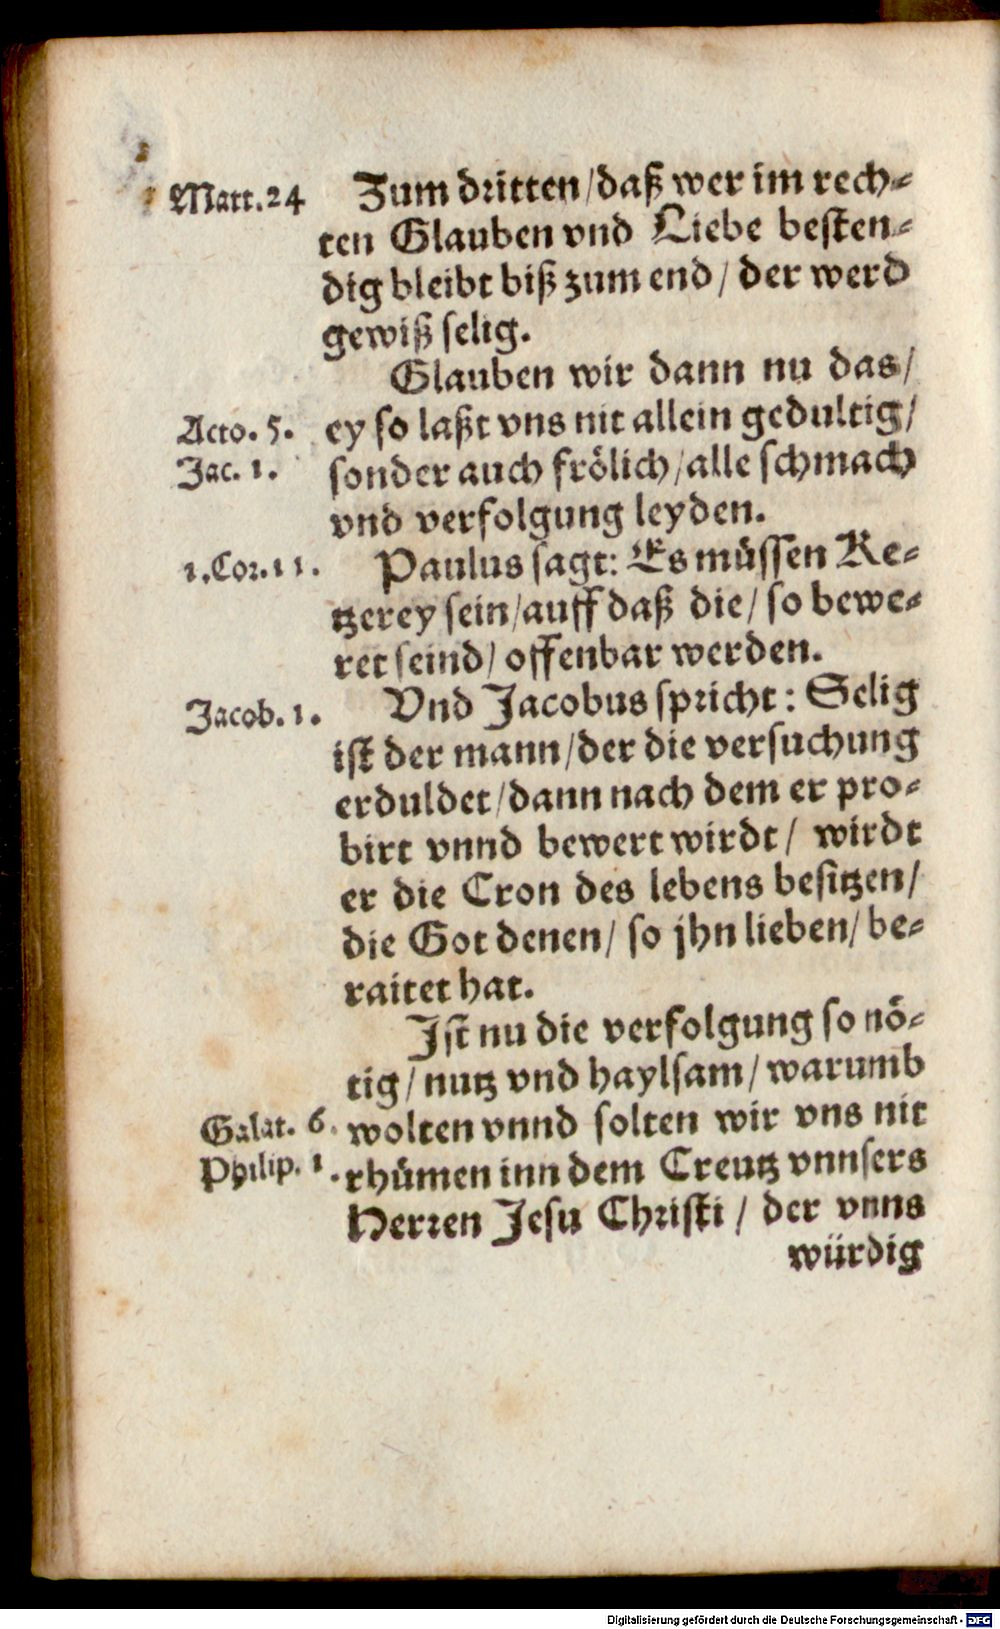 Matt.24 Zum dritten/daß wer im rech-
ten Glauben vnd Liebe besten-
dig bleibt biß zum end/ der werd
gewiß selig.
Glauben wir dann nu das/
Acto. 5. ey so laßt vns nit allein gedultig/
Jac. 1. sonder auch frölich/alle schmach
vnd verfolgung leyden.
1.Cor.11. Paulus sagt: Es müssen Ke-
tzerey sein/auff daß die/ so bewe-
ret seind/ offenbar werden.
Jacob. 1. Vnd Jacobus spricht: Selig
ist der mann/der die versuchung
erduldet/dann nach dem er pro-
birt vnnd bewert wirdt/ wirdt
er die Cron des lebens besitzen/
die Got denen/ so jhn lieben/ be-
raitet hat.
Ist nu die verfolgung so nö-
tig/ nutz vnd haylsam/ warumb
Galat. 6. wolten vnnd solten wir vns nit
Philip. 1. rhümen inn dem Creutz vnnsers
Herren Jesu Christi / der vnns
würdig
Digitalisierung gefördert durch die Deutsche Forschungsgemeinschaft - DFG